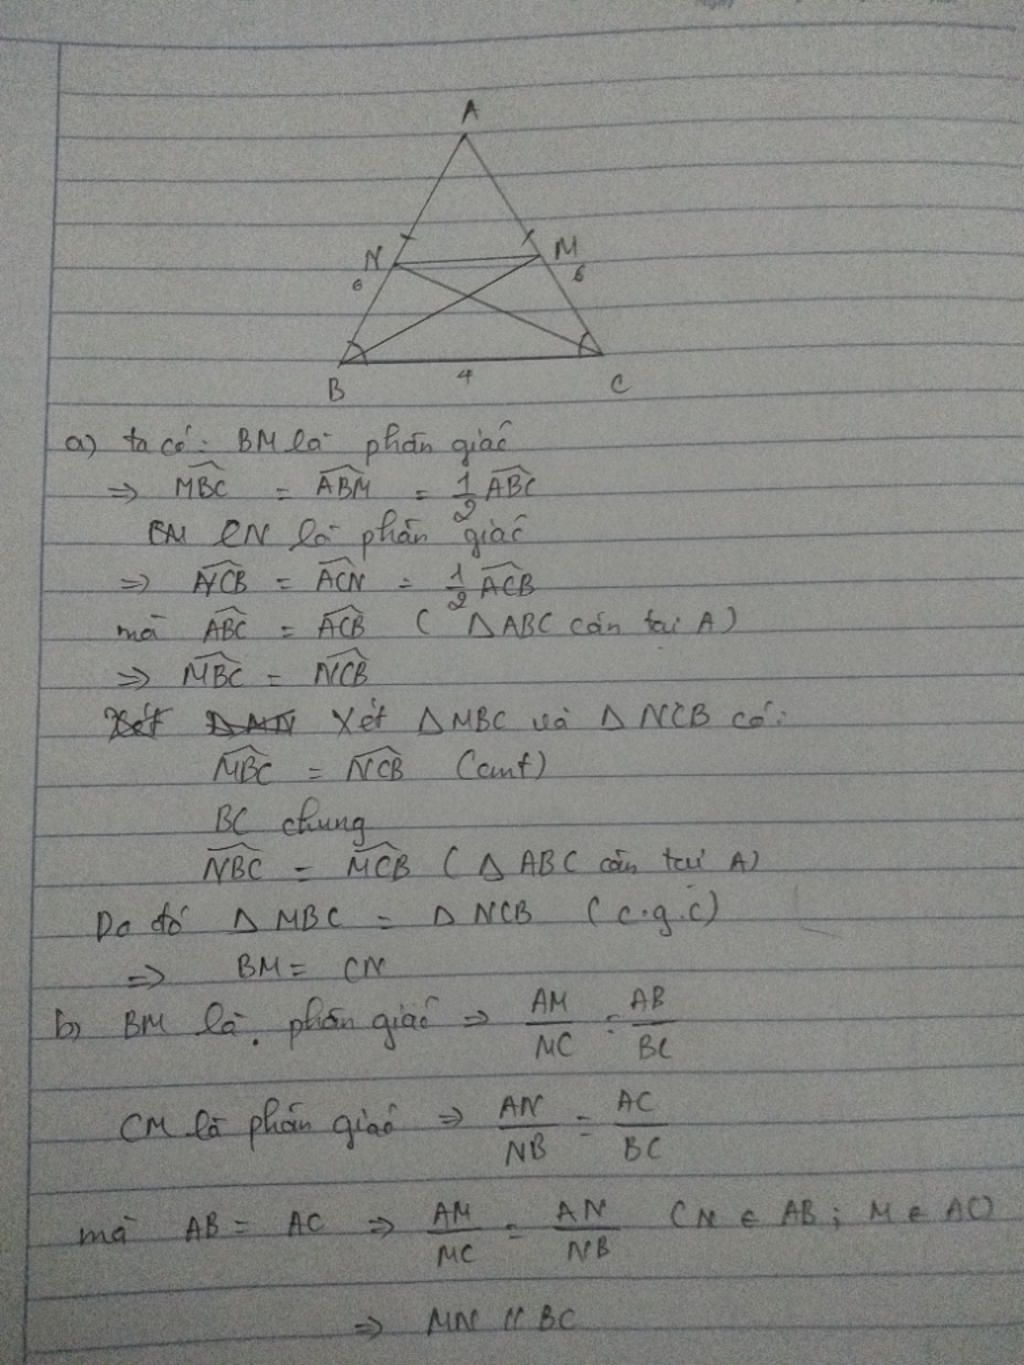 A
N
M
6
6
B
4
C
a) ta có: BM là phân giác
⇒ \widehat{MBC} = \widehat{ABM} = \frac{1}{2} \widehat{ABC}
CN là phân giác
⇒ \widehat{NCB} = \widehat{ACN} = \frac{1}{2} \widehat{ACB}
mà \widehat{ABC} = \widehat{ACB} ( ΔABC cân tại A)
⇒ \widehat{MBC} = \widehat{NCB}
Xét ΔMBC và ΔNCB có:
\widehat{MBC} = \widehat{NCB} (cmt)
BC chung
\widehat{NBC} = \widehat{MCB} ( ΔABC cân tại A)
Do đó ΔMBC = ΔNCB (c.g.c)
⇒ BM = CN
b) BM là phân giác ⇒ \frac{AM}{MC} = \frac{AB}{BC}
CM là phân giác ⇒ \frac{AN}{NB} = \frac{AC}{BC}
mà AB = AC ⇒ \frac{AM}{MC} = \frac{AN}{NB} (N ∈ AB; M ∈ AC)
⇒ MN // BC